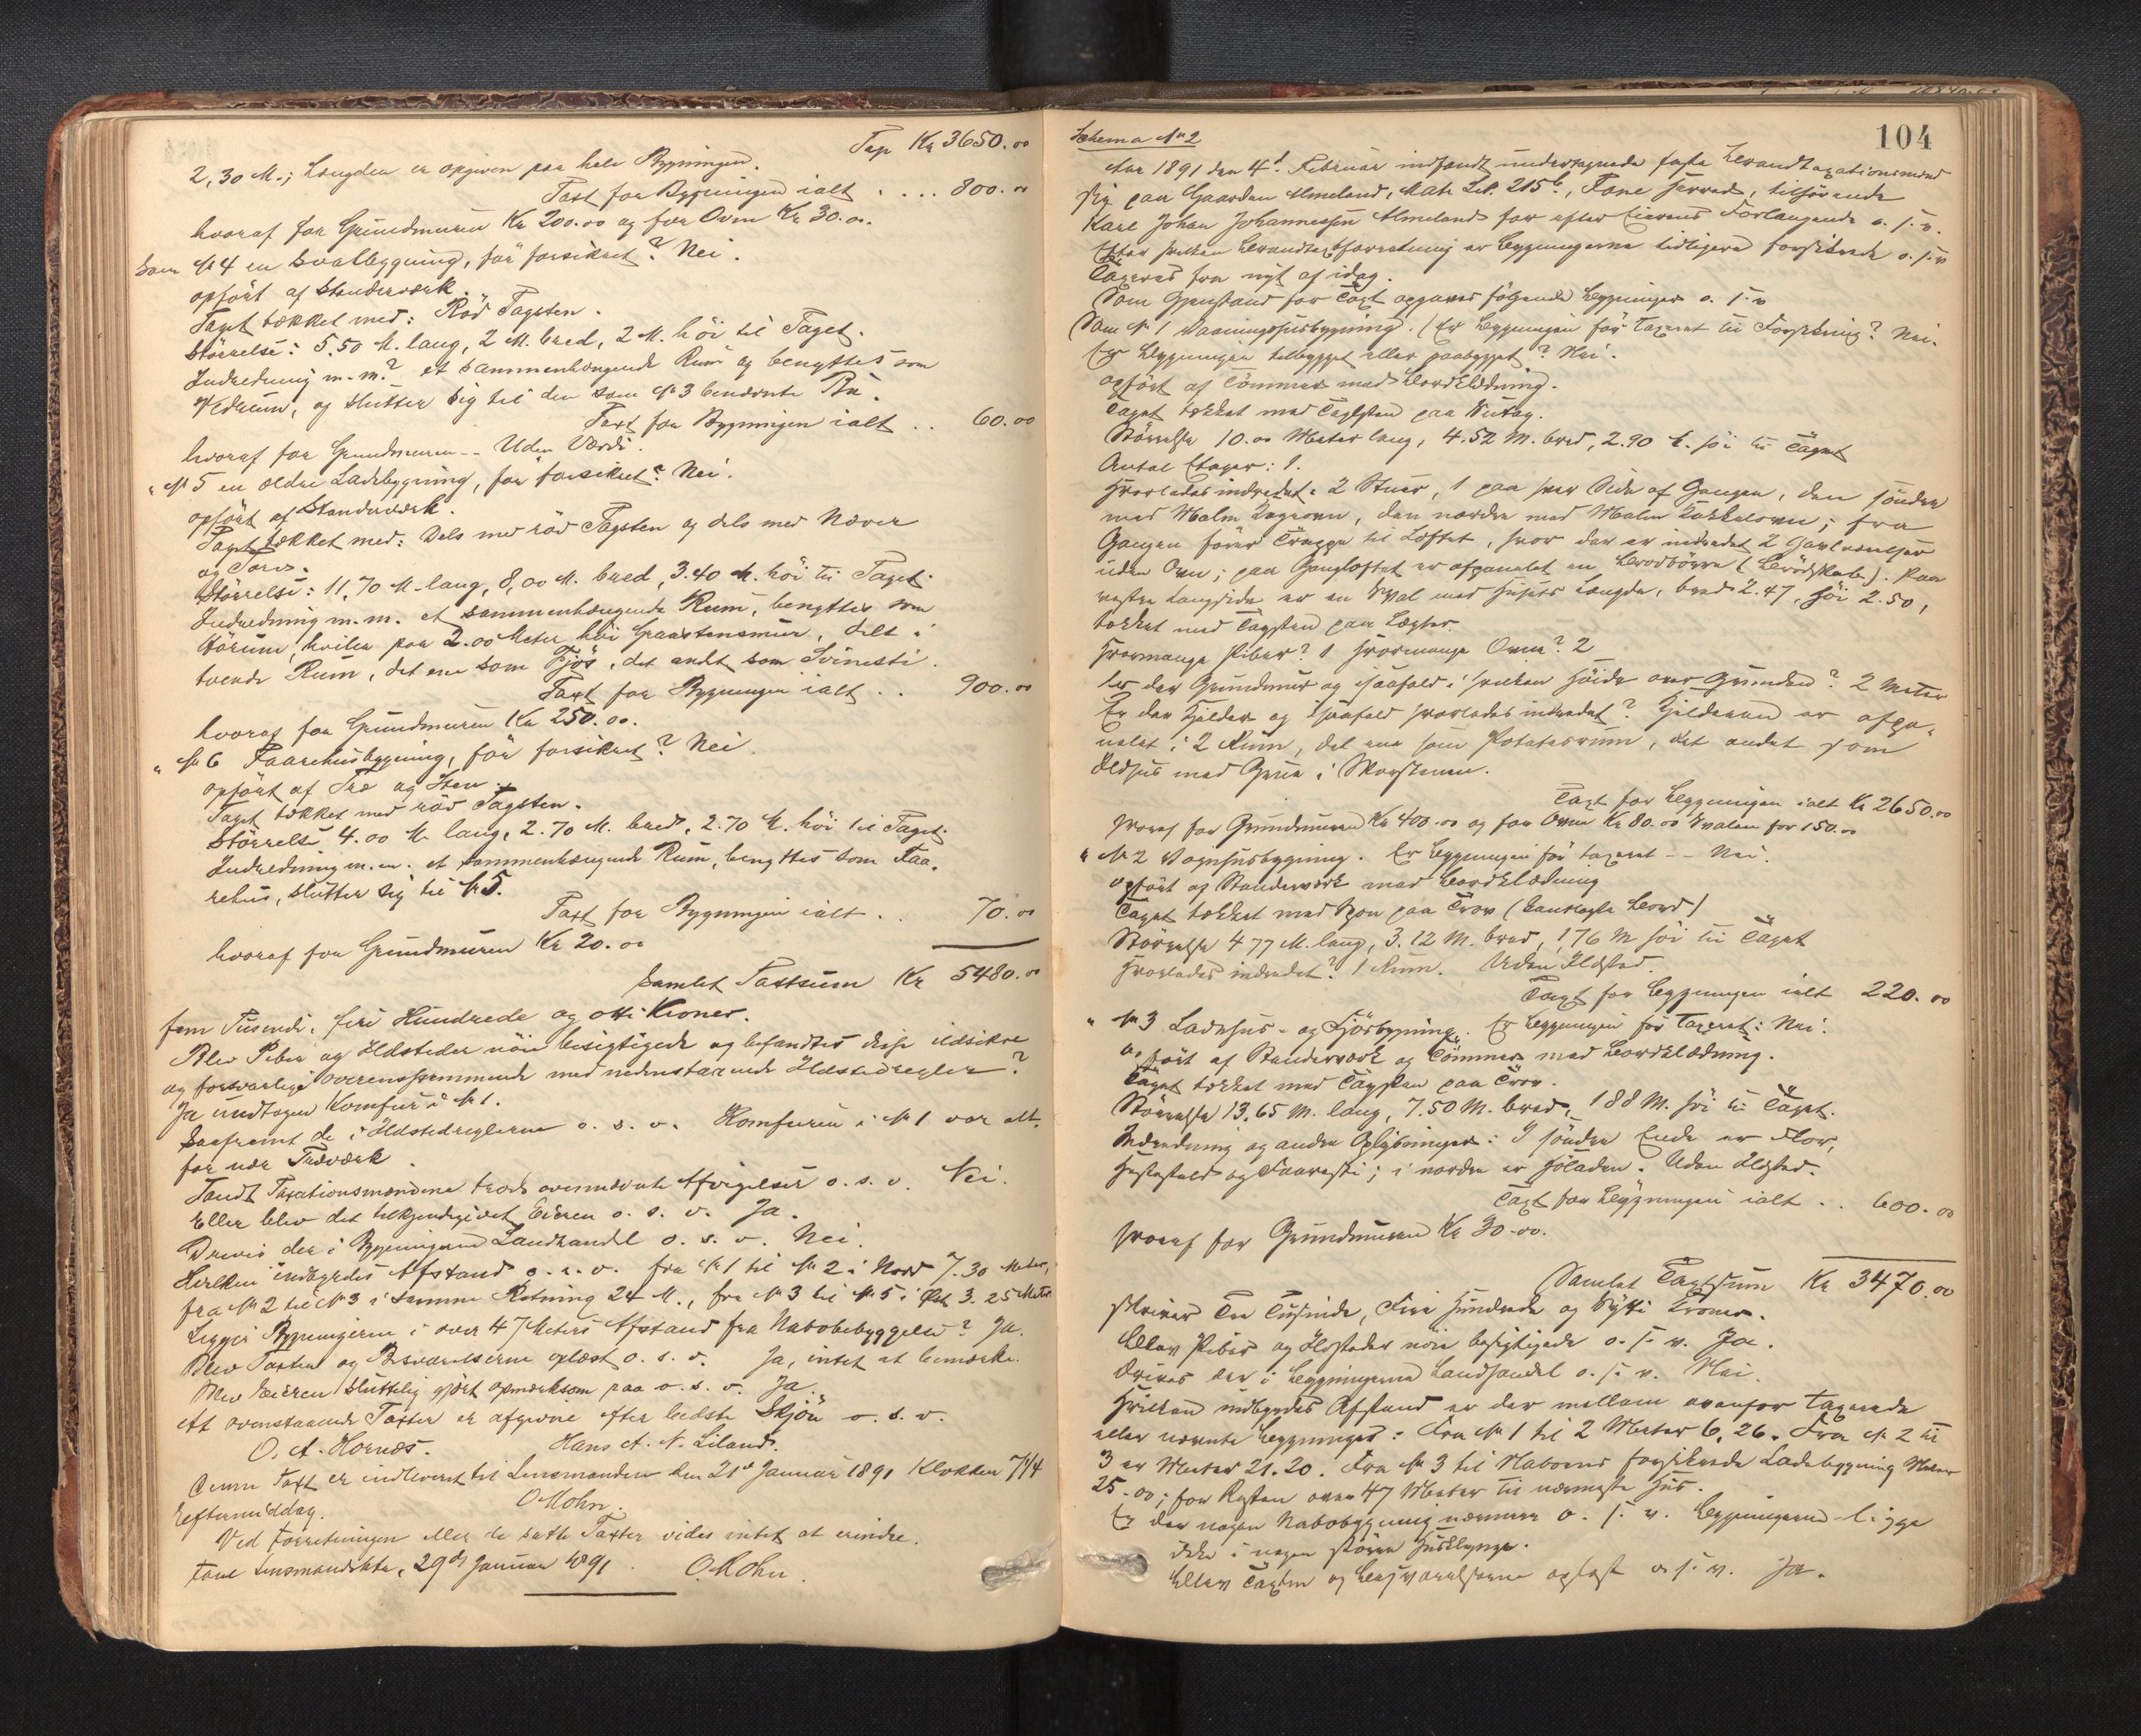 Tap Kr 3650.00
2,30 M.; Længden er opgiven paa hele Bygningen.
Taxt for Bygningen ialt . ... 800.00
hvoraf for Grundmuren Kr 200.00 og for Ovne Kr 30.00.
Som No 4 en Svalbygning, før forsikret? Nei.
opført af Standerværk.
Taget tækket med: Rød Tagsten.
Størrelse: 5.50 M. lang, 2 M. bred, 2 M. høi til Taget.
Indredning m.m.? et sammenhængende Rum og benyttes som
Vedrum, og slutter sig til den som No 3 benævnte Bu.
Taxt for Bygningen ialt .. 60.00
hvoraf for Grundmuren -- Uden Værdi.
" No 5 en ældre Ladebygning, før forsikret? Nei.
opført af Standerværk.
Taget tækket med: Dels med rød Tagsten og dels med Næver
og Torv.
Størrelse: 11,70 M. lang, 8,00 M. bred, 3.40 M. høi til Taget.
Indredning m.m. et sammenhængende Rum, benyttes som
Hørum, hviler paa 2.00 Meter høi Graastensmur, delt i
tvende Rum, det ene som Fjøs, det andet som Svinesti.
Taxt for Bygningen ialt .. 900.00
hvoraf for Grundmuren Kr 250.00.
" No 6 Faarehusbygning, før forsikret? Nei
opført af Træ og Sten.
Taget tækket med rød Tagsten.
Størrelse 4.00 M. lang, 2.70 M. bred, 2.70 M. høi til Taget.
Indredning m.m. et sammenhængende Rum, benyttes som Faa-
rehus, slutter sig til No 5.
Taxt for Bygningen ialt .. 70.00
hvoraf for Grundmuren Kr 20.00
Samlet Taxtsum Kr 5480.00
fem Tusende, firi Hundrede og otti Kroner.
Blev Piber og Ildsteder nøie besigtigede og befandtes disse ildsikre
og forsvarlige overensstemmende med nedenstaaende Ildstedregler?
Ja undtagen Komfur i No 1.
Saafremt de i Ildstedreglerne o. s. v. Komfuren i No 1 var alt-
for nær Træværk.
Fandt Taxationsmændene trods ovennævnte Afvigelser o. s. v. Nei.
Eller blev det tilkjendegivet Eieren o. s. v. Ja.
Drives der i Bygningerne Landhandel o. s. v. Nei.
Hvilken indbyrdes Afstand o. s. v. fra No 1 til No 2 i Nord 7.30 Meter,
fra No 2 til No 3 i samme Retning 24 M., fra No 3 til No 5 i Øst 3.25 Meter
Ligger Bygningerne i over 47 Meters Afstand fra Nabobebyggelse? Ja.
Blev Taxten og Besvarelserne oplæst o. s. v. Ja, intet at bemærke.
Blev Eieren sluttelig gjort opmærksom paa o. s. v. Ja
At ovenstaaende Taxter er afgivne efter bedste Skjøn o. s. v.
O. A. Hornæs. Hans A. N. Liland.
Denne Taxt er indleveret til Lensmanden den 21de Januar 1891 Klokken 7 1/4
Eftermiddag. O Mohn.
Ved Forretningen eller de satte Taxter vides intet at erindre.
Fane Lensmandskte, 29de Januar 1891 O. Mohn.
104
Schema No 2
Aar 1891 den 4d Februar indfandt undertegnede faste Brandtaxationsmænd
sig paa Gaarden Almeland, Matr. Lit. 215b, Fane Herred, tilhørende
Karl Johan Johannessen Almeland for efter Eierens Forlangende o. s. v.
Efter hvilken Brandtaxtforretning er Bygningerne tidligere forsikrede o. s. v
Taxeres fra nyt af idag.
Som Gjenstand for Taxt opgaves følgende Bygninger o. s. v
Som No 1 Vaaningshusbygning. (Er Bygningen før Taxeret til Forsikring? Nei.
Er Bygningen tilbygget eller paabygget? Nei.
opført af Tømmer med Bordklædning.
Taget tækket med Taglsten paa Sutag.
Størrelse 10.00 Meter lang, 4.52 M. bred, 2.90 M. høi til Taget
Antal Etager: 1.
Hvorledes indredet: 2 Stuer, 1 paa hver Side af Gangen, den søndre
med Malm Kogeovn, den nordre med Malm Kakkelovn; fra
Gangen fører Trappe til Loftet, hvor der er indredet 2 Gavlværelser
uden Ovn; paa Gangloftet er afpanelet en Brødbørre (Brødskab). Paa
vestre Langside er en Sval med Husets Længde, bred 2.47, høi 2.50,
tækket med Tagsten paa Lægter.
Hvormange Piber? 1 Hvormange Ovne? 2
Er der Grundmur og isaafald i hvilken Høide over Grunden? 2 Meter
Er der Kjelder og isaafald hvorledes indredet? Kjelderen er afpa-
nelet i 2 Rum, det ene som Potetesrum, det andet som
Ildhus med Grue i Skorstenen.
Taxt for Bygningen ialt Kr 2650.00
hvoraf for Grundmuren Kr 400.00 og for Ovne Kr 80.00 Svalen for 150.00
" No 2 Vognhusbygning. Er Bygningen før taxeret -- Nei.
opført af Standerværk med Bordklædning
Taget tækket med Spon paa Trov (kantlagte Bord)
Størrelse 4 77 M. lang, 3.12 M. bred, 1 76 M høi til Taget
Hvorledes indredet? 1 Rum. Uden Ildsted.
Taxt for Bygningen ialt 220.00
" No 3 Ladehus- og Fjøsbygning. Er Bygningen før Taxeret: Nei.
opført af Standerværk og Tømmer med Bordklædning.
Taget tækket med Tagsten paa Trov.
Størrelse 13.65 M. lang, 7.50 M. bred, 1 88 M. høi til Taget.
Indredning og andre Oplysninger: I søndre Ende er Flor,
Hestestald og Faaresti; i nordre er Høladen. Uden Ildsted.
Taxt for Bygningen ialt .. 600.00
hvoraf for Grundmuren Kr 30.00.
Samlet Taxtsum Kr 3470.00
skriver Tre Tusinde, Fire Hundrede og Sytti Kroner.
Blev Piber og Ildsteder nøie besigtigede o. s. v. Ja.
Drives der i Bygningerne Landhandel o. s. v. Nei.
Hvilken indbyrdes Afstand er der mellem ovenfor taxerede
eller nævnte Bygninger: Fra No 1 til 2 Meter 6.26. Fra No 2 til
3 er Meter 21.20. Fra No 3 til Naboens forsikrede Ladebygning Meter
25.00; for Resten over 47 Meter til nærmeste Hus.
Er der nogen Nabobygning nærmere o. s. v. Bygningerne ligge
ikke i nogen større Husklynge.
Blev Taxten og Besvarelserne oplæst o. s. v. Ja.